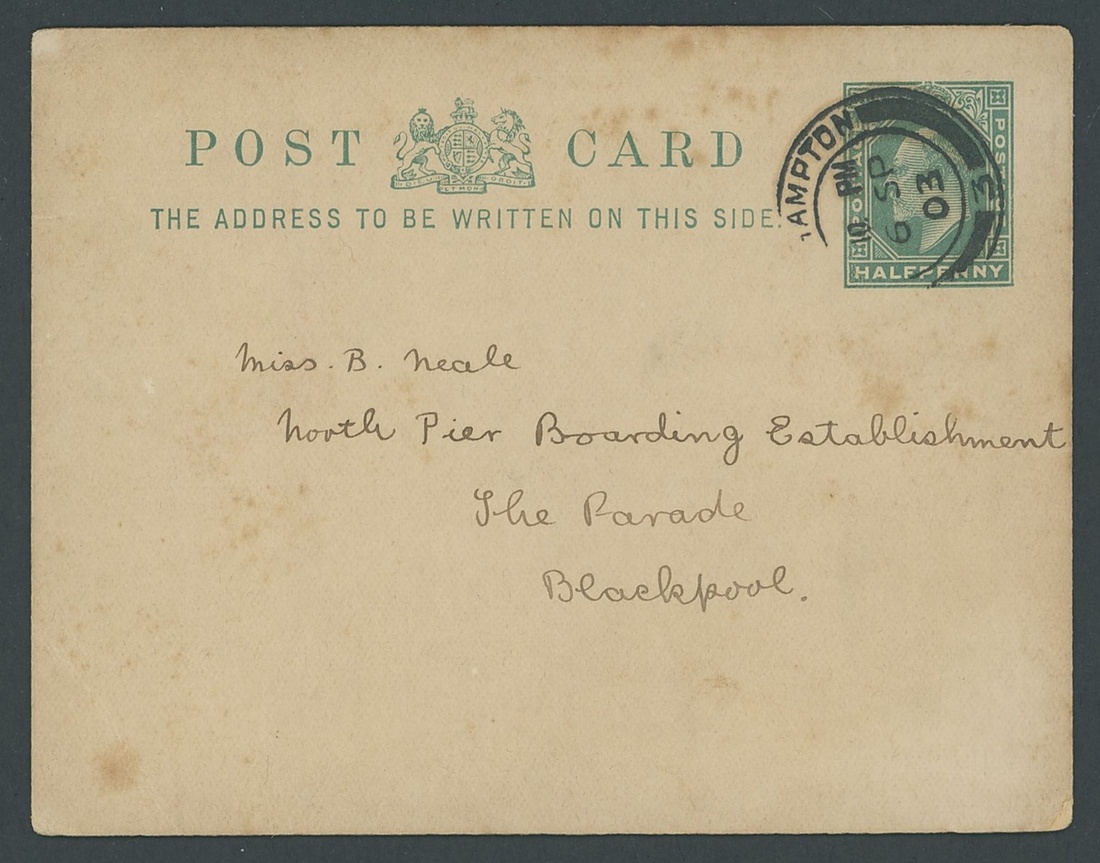 POST CARD
DIEU ET MON DROIT
THE ADDRESS TO BE WRITTEN ON THIS SIDE.
AMPTON
10 PM
6 SP
03
HALFPENNY
Miss. B. Neale
North Pier Boarding Establishment
The Parade
Blackpool.